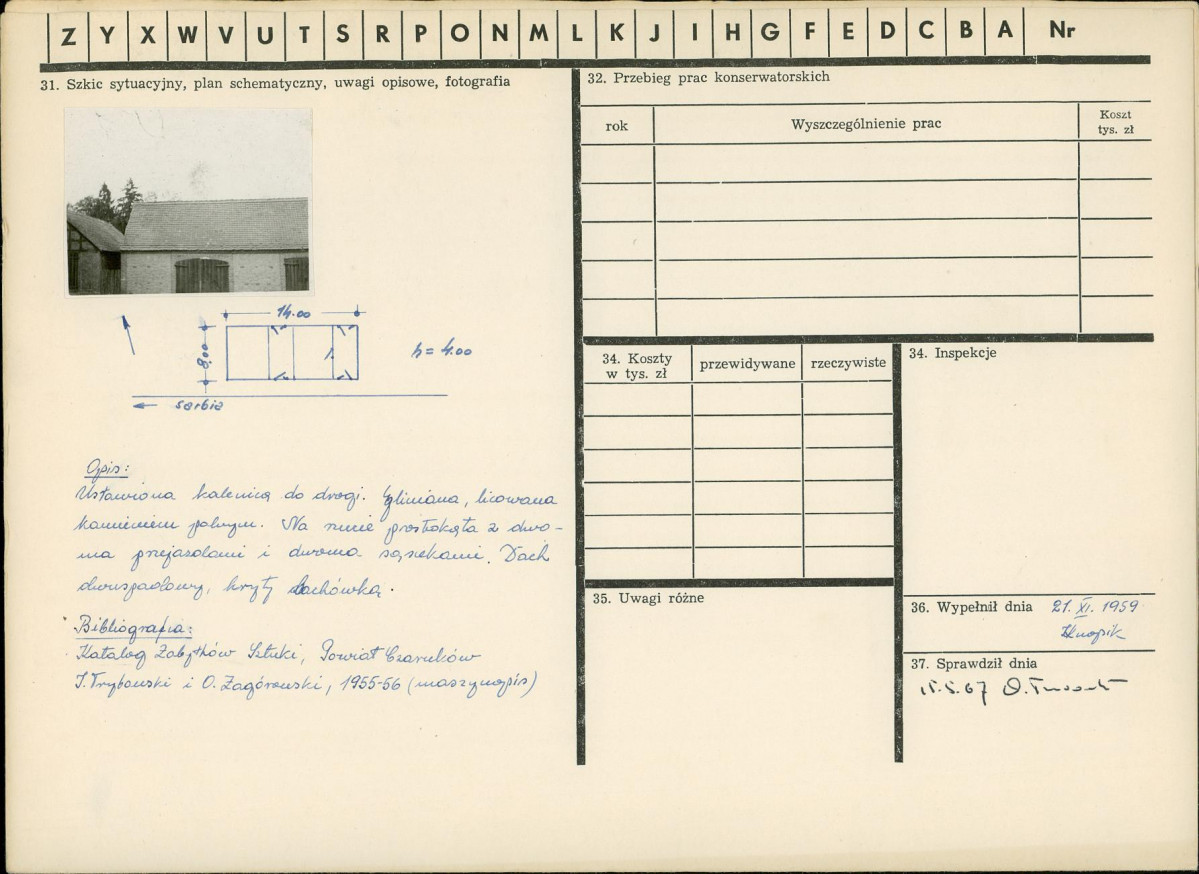 Z Y X W V U T S R P O N M L K J I H G F E D C B A Nr
31. Szkic sytuacyjny, plan schematyczny, uwagi opisowe, fotografia
14.00
8,00
h = 4.00
sarbia
Opis:
Ustawiona kalenicą do drogi. Gliniana, licowana
kamieniem polnym. Na rzucie prostokąta z dwo-
ma przejazdami i dwoma sąsiekami. Dach
dwuspadowy, kryty dachówką.
Bibliografia:
Katalog Zabytków Sztuki, Powiat Czarnków
i O. Zagórowski, 1955-56 (maszynopis)
32. Przebieg prac konserwatorskich
rok Wyszczególnienie prac Koszt
tys. zł
34. Koszty
w tys. zł przewidywane rzeczywiste
35. Uwagi różne
34. Inspekcje
36. Wypełnił dnia 21. XI. 1959
37. Sprawdził dnia
15.5.67